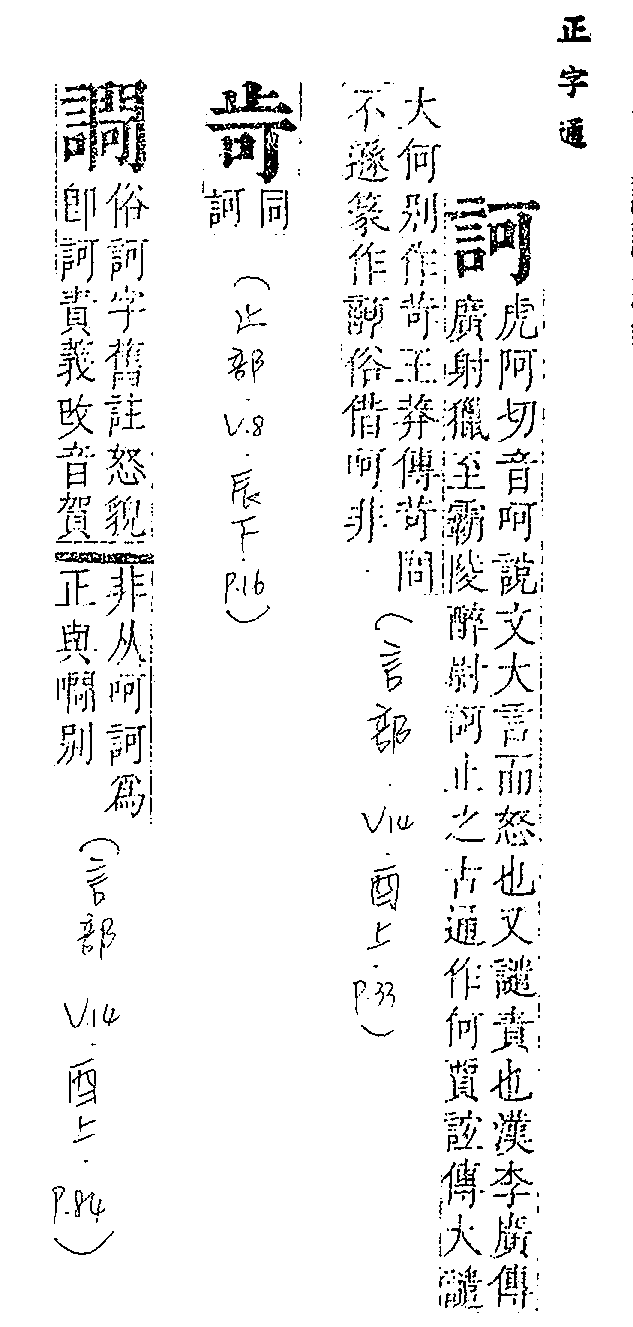 正字通
訶
虎阿切音呵說文大言而怒也又譴責也漢李廣傳
廣射獵至霸陵醉尉訶止之古通作何賈誼傳大譴
大何別作苛王莽傳苛問
不遜篆作訶俗偕呵非
(言部.V.14.酉上.P.33)
同
訶
(止部.V.8.辰下.P.16)
俗訶字舊註怒貌
即訶責義改音賀
非从呵訶為
正與別
(言部 V.14.酉上.P.84)